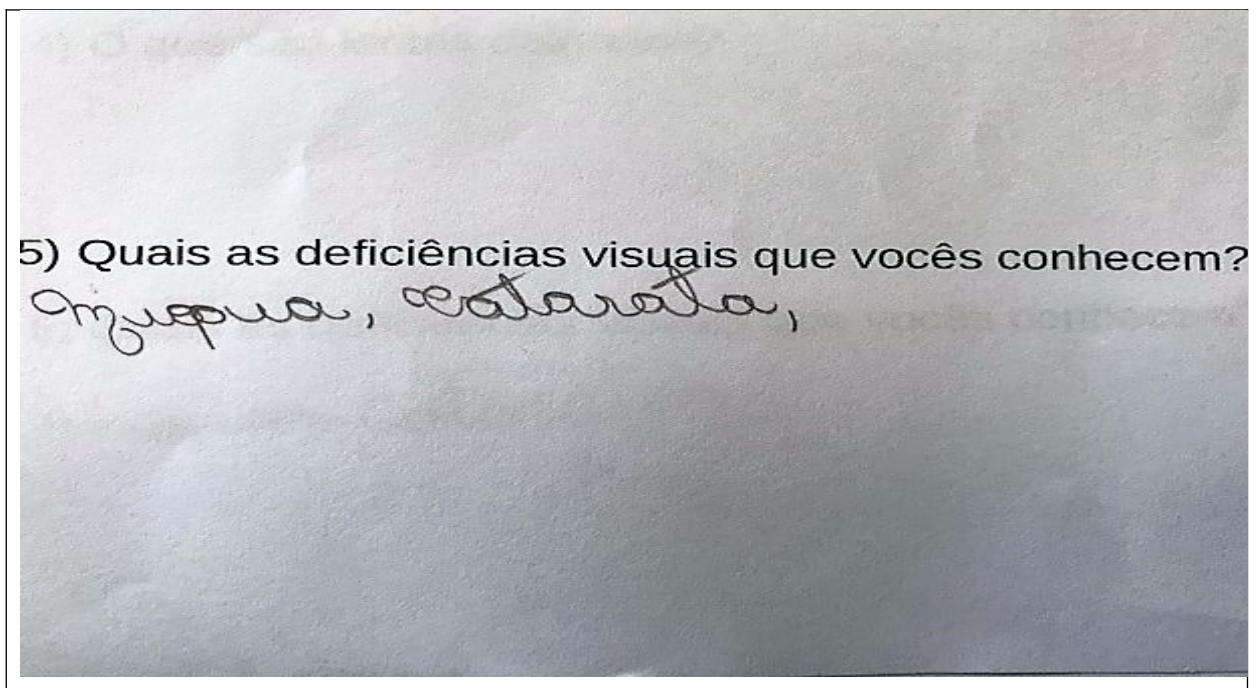 5) Quais as deficiências visuais que vocês conhecem?
miopia, catarata,